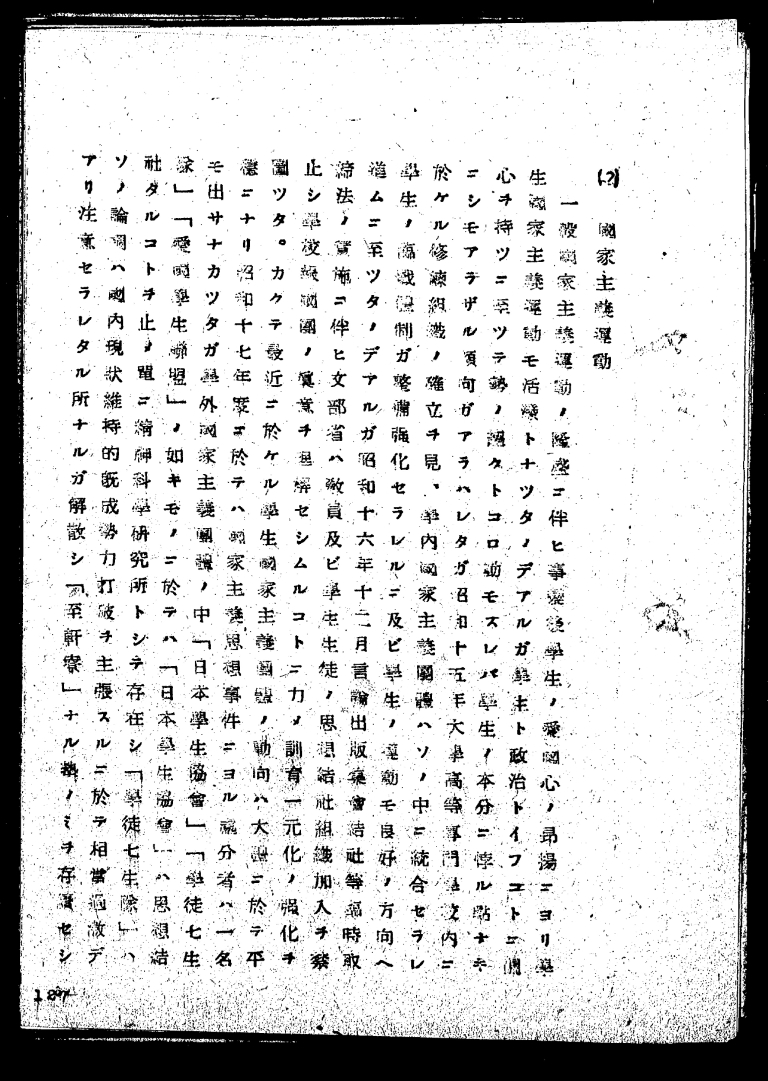 (2) 國家主義運動
一般國家主義運動ノ隆盛ニ伴ヒ事變後學生ノ愛國心ノ昂揚ニヨリ學
生國家主義運動モ活潑トナツタノデアルガ學生ト政治トイフコトニ關
心ヲ持ツニ至ツテ勢ノ趨クトコロ動モスレバ學生ノ本分ニ悖ル點ナキ
ニシモアラザル傾向ガアラハレタガ昭和十五年大學高等專門學校内ニ
於ケル修練組織ノ確立ヲ見、學内國家主義團體ハソノ中ニ統合セラレ
學生ノ 制ガ整備强化セラレルニ及ビ學生ノ運動モ良好ノ方向ヘ
進ムニ至ツタノデアルガ昭和十六年十二月言論出版集會結社等臨時取
締法ノ實施ニ伴ヒ文部省ハ敎員及ビ學生生徒ノ思想結社組織加入ヲ禁
止シ學校報國團ノ眞意ヲ理解セシムルコトニ力メ訓育一元化ノ强化ヲ
圖ツタ。カクテ最近ニ於ケル學生國家主義團體ノ動向ハ大體ニ於テ平
穩ニナリ昭和十七年度ニ於テハ國家主義思想事件ニヨル處分者ハ一名
モ出サナカツタガ學外國家主義團體ノ中「日本學生協會」「學徒七生
隊」「愛國學生聯盟」ノ如キモノニ於テハ「日本學生協會」ハ思想結
社タルコトヲ止メ單ニ精神科學硏究所トシテ存在シ「學徒七生隊」ハ
ソノ論調ハ國内現狀維持的旣成勢力打破ヲ主張スルニ於テ相當過激デ
アリ注意セラレタル所ナルガ解散シ「至軒寮」ナル塾ノミヲ存續セシ
187